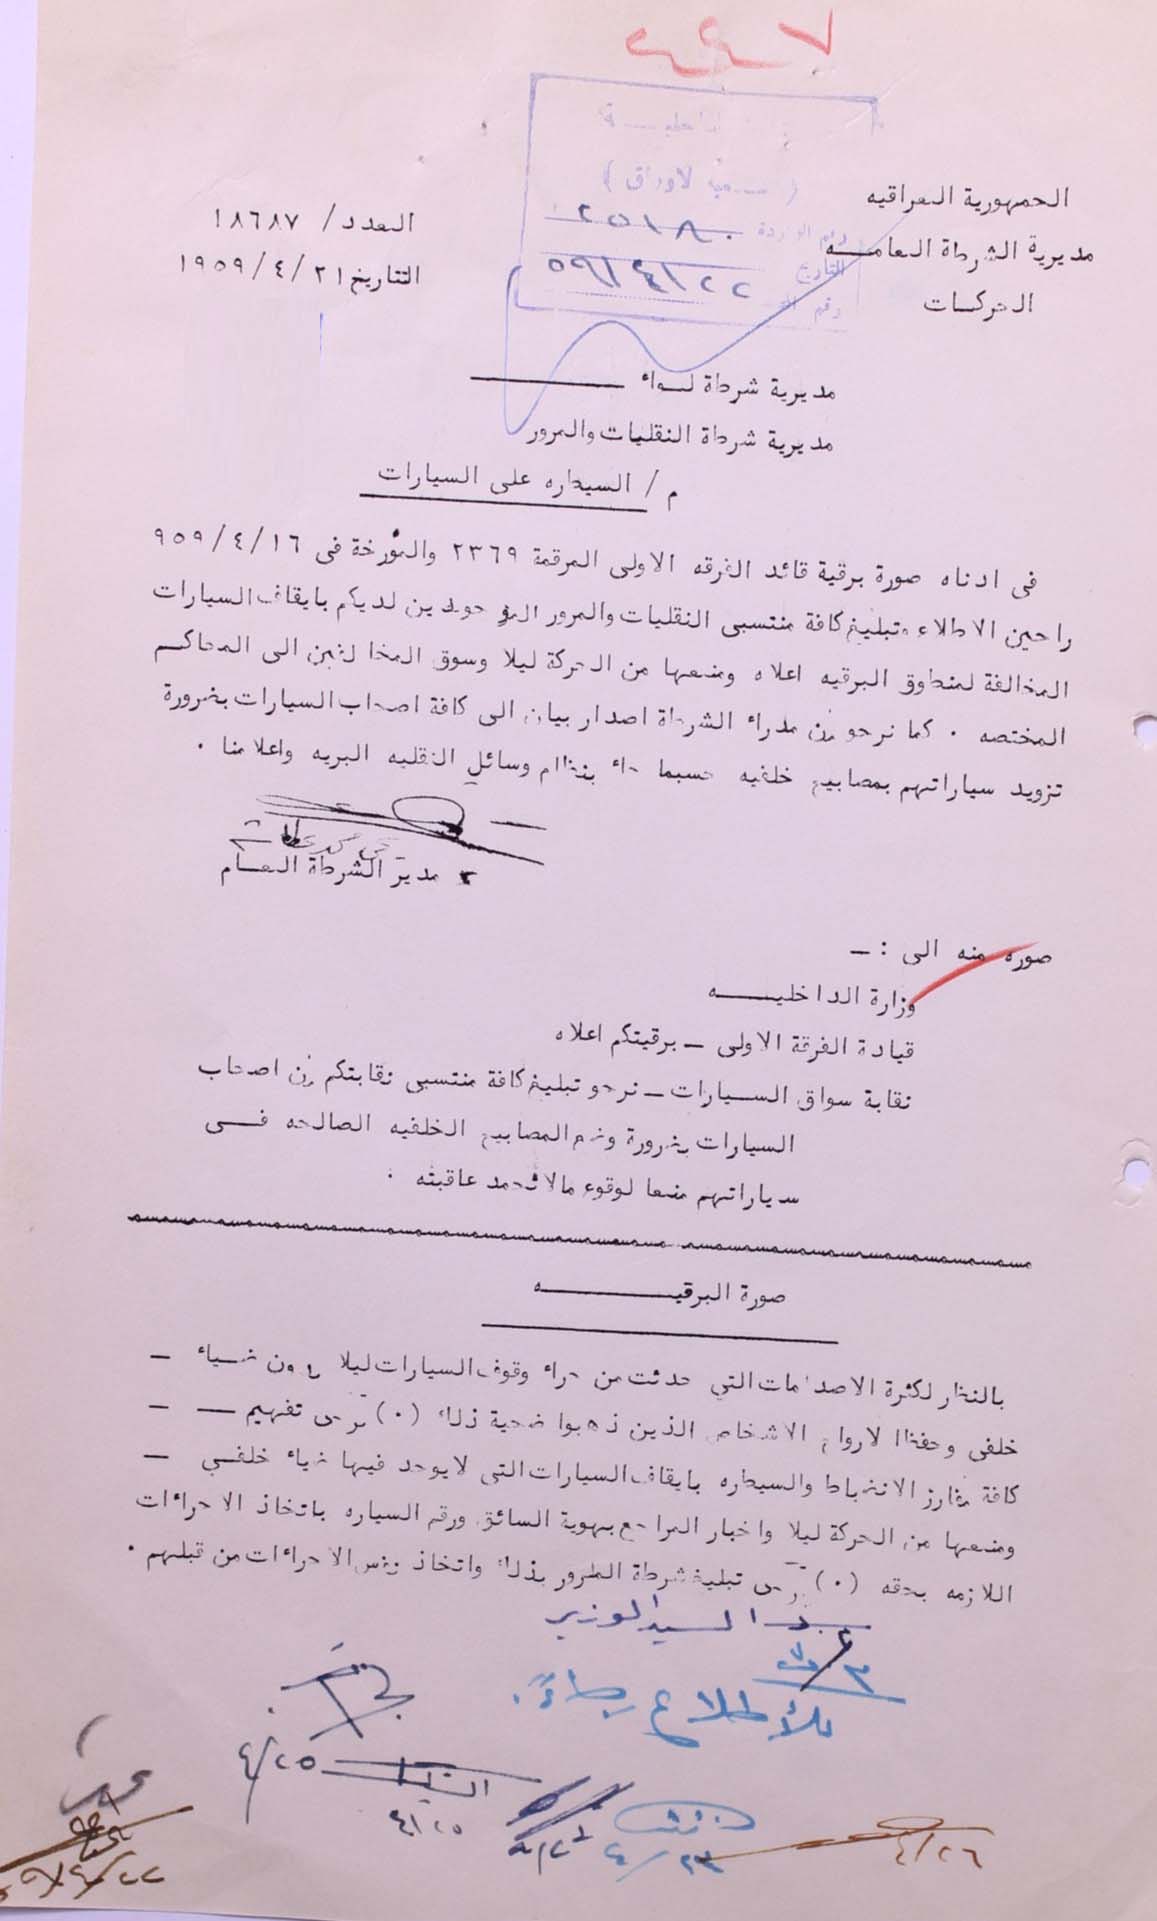 الجمهورية العراقيه
مديرية الشرطة العامـــه
الحركـات
العدد / ١٨٦٨٧
التاريخ ٢١ / ٤ / ١٩٥٩
( الاوراق )
رقم الواردة ٢٥١٨٠
التاريخ ٢٢ / ٤ / ٥٩
مديرية شرطة لــواء ــــــــــ
مديرية شرطة النقليات والمرور
م / السيطره على السيارات
في ادناه صورة برقية قائد الفرقه الاولى المرقمة ٢٣٦٩ والمؤرخة في ١٦ / ٤ / ٩٥٩
راجين الاطلاع وتبليغ كافة منتسبى النقليات والمرور الموجودين لديكم بايقاف السيارات
المخالفة لمنطوق البرقيه اعلاه ومنعها من الحركة ليلا وسوق المخالفين الى المحاكـم
المختصه . كما نرجو من مدراء الشرطة اصدار بيان الى كافة اصحاب السيارات بضرورة
تزويد سياراتهم بمصابيح خلفيه حسبما جاء بنظام وسائل النقليه البريه واعلامنا .
مدير الشرطة العــام
صوره منه الى : ــ
وزارة الداخليـــــه
قيادة الفرقة الاولى ــ برقيتكم اعلاه
نقابة سواق السـيارات ــ نرجو تبليغ كافة منتسبى نقابتكم من اصحاب
السيارات بضرورة وضع المصابيح الخلفيه الصالحه فــى
سياراتهم منعا لوقوع مالا تحمد عاقبته .
صورة البرقيـــــــه
بالنظر لكثرة الاصدامات التي حدثت من جراء وقوف السيارات ليلا بدون ضـياء ــ
خلفى وحفظا لارواح الاشخاص الذين ذهبوا ضحية ذلك (٠) يرجى تفهيم ــ ــ
كافة مفارز الانضباط والسيطره بايقاف السيارات التى لا يوجد فيها ضياء خلفـي ــ
ومنعها من الحركة ليلا واخبار المراجع بهوية السائق ورقم السياره باتخاذ الاجراءات
اللازمه بحقه (٠) يرجى تبليغ شرطة المرور بذلك واتخاذ نفس الاجراءات من قبلهم .
السيد الوزير
للأطلاع رجاءً .
٤/٢٥
٤/٢٥
٤/٢٣
٤/٢٦